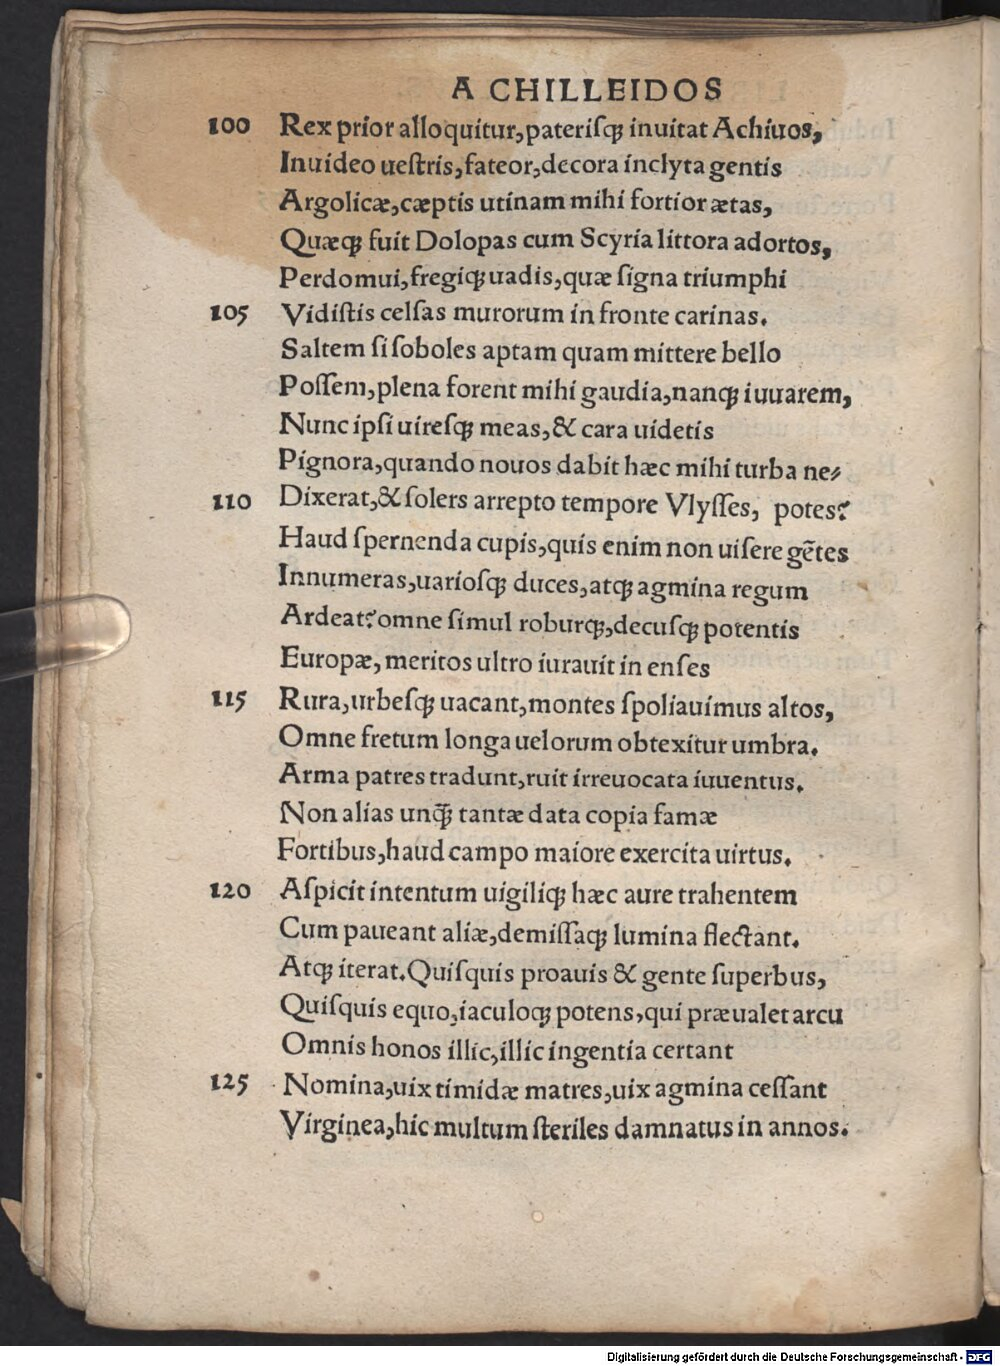 A CHILLEIDOS
100 Rex prior alloquitur,pateriſqꝫ inuitat Achiuos,
Inuideo ueſtris,fateor,decora inclyta gentis
Argolicæ,cæptis utinam mihi fortior ætas,
Quæqꝫ fuit Dolopas cum Scyria littora adortos,
Perdomui,fregiqꝫ uadis,quæ ſigna triumphi
105 Vidiſtis celſas murorum in fronte carinas.
Saltem ſi ſoboles aptam quam mittere bello
Poſſem,plena forent mihi gaudia,nanqꝫ iuuarem,
Nunc ipſi uireſqꝫ meas,& cara uidetis
Pignora,quando nouos dabit hæc mihi turba ne⸗
110 Dixerat,& ſolers arrepto tempore Vlyſſes, potes?
Haud ſpernenda cupis,quis enim non uiſere gẽtes
Innumeras,uarioſqꝫ duces,atqꝫ agmina regum
Ardeat?omne ſimul roburqꝫ,decuſqꝫ potentis
Europæ,meritos ultro iurauit in enſes
115 Rura,urbeſqꝫ uacant,montes ſpoliauimus altos,
Omne fretum longa uelorum obtexitur umbra.
Arma patres tradunt,ruit irreuocata iuuentus.
Non alias unqꝫ̃ tantæ data copia famæ
Fortibus,haud campo maiore exercita uirtus.
120 Aſpicit intentum uigiliqꝫ hæc aure trahentem
Cum paueant aliæ,demiſſaqꝫ lumina flectant.
Atqꝫ iterat.Quiſquis proauis & gente ſuperbus,
Quiſquis equo,iaculoqꝫ potens,qui præualet arcu
Omnis honos illic,illic ingentia certant
125 Nomina,uix timidæ matres,uix agmina ceſſant
Virginea,hic multum ſteriles damnatus in annos.
Digitalisierung gefördert durch die Deutsche Forschungsgemeinschaft - DFG